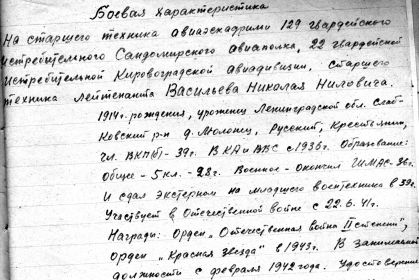 Боевая характеристика
На старшего техника авиаэскадрилии 129 гвардейского
истребительного Сандомирского авиаполка, 22 гвардейской
истребительной Кировоградской авиадивизии, старшего
техника лейтенанта Васильева Николая Ниловича.
1914г. рождения, уроженец Ленинградской обл. Слаб-
Ковский р-н д. Молонец, Русский, Крестьянин,
чл. ВКП(б) - 39г. В КА и ВВС с 1936г. Образование:
Общее - 5 кл. - 28г. Военное - Окончил ШМАС - 36г.
и сдал экстерном на младшего воентехника в 39г.
Участвует в Отечественной войне с 22.6.41г.
Награды: Орден „Отечественная война II степени",
Орден „Красная Звезда" в 1943г. В занимаемой
должности с февраля 1942 года. Удостоверение